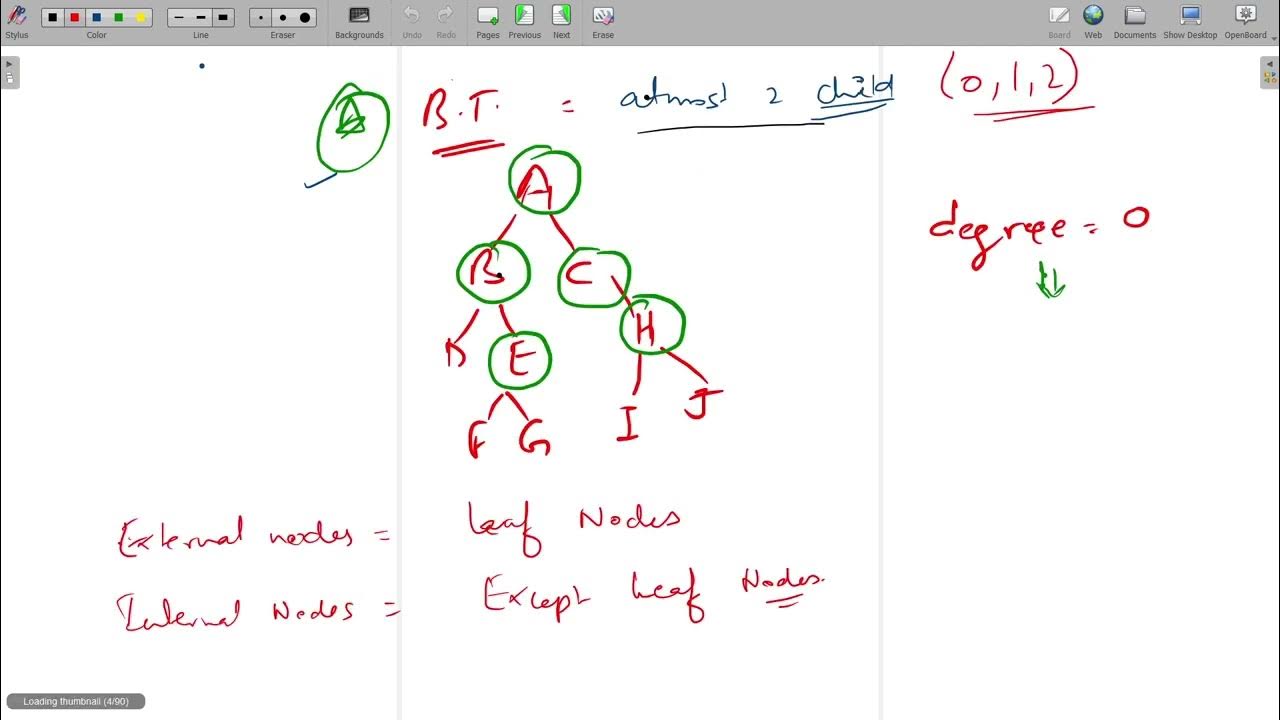 Stylus Color Line Eraser Backgrounds Undo Redo Pages Previous Next Erase Board Web Documents Show Desktop OpenBoard
A B.T. = atmost 2 child (0,1,2)
A
degree = 0
B C
H
D E
I J
F G
External nodes = Leaf Nodes
Internal Nodes = Except Leaf Nodes.
Loading thumbnail (4/90)